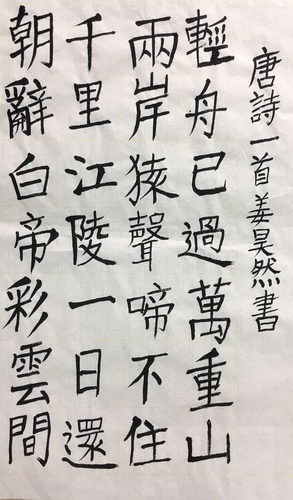 朝辭白帝彩雲間
千里江陵一日還
兩岸猿聲啼不住
輕舟已過萬重山
唐詩一首姜昊然書